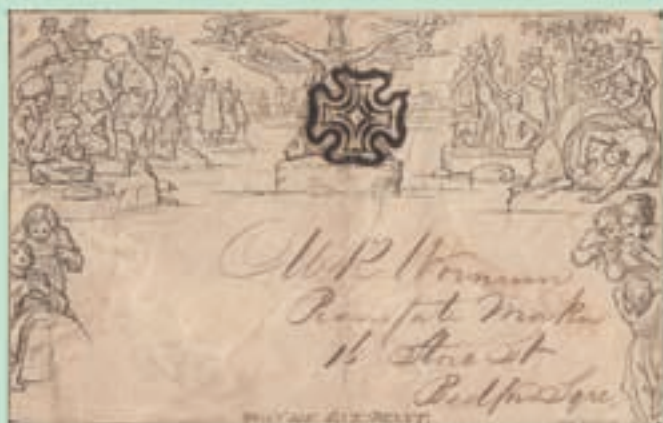 Mr R Wornum
Piano forte Maker
16 Store St
Bedford Sqre
POSTAGE